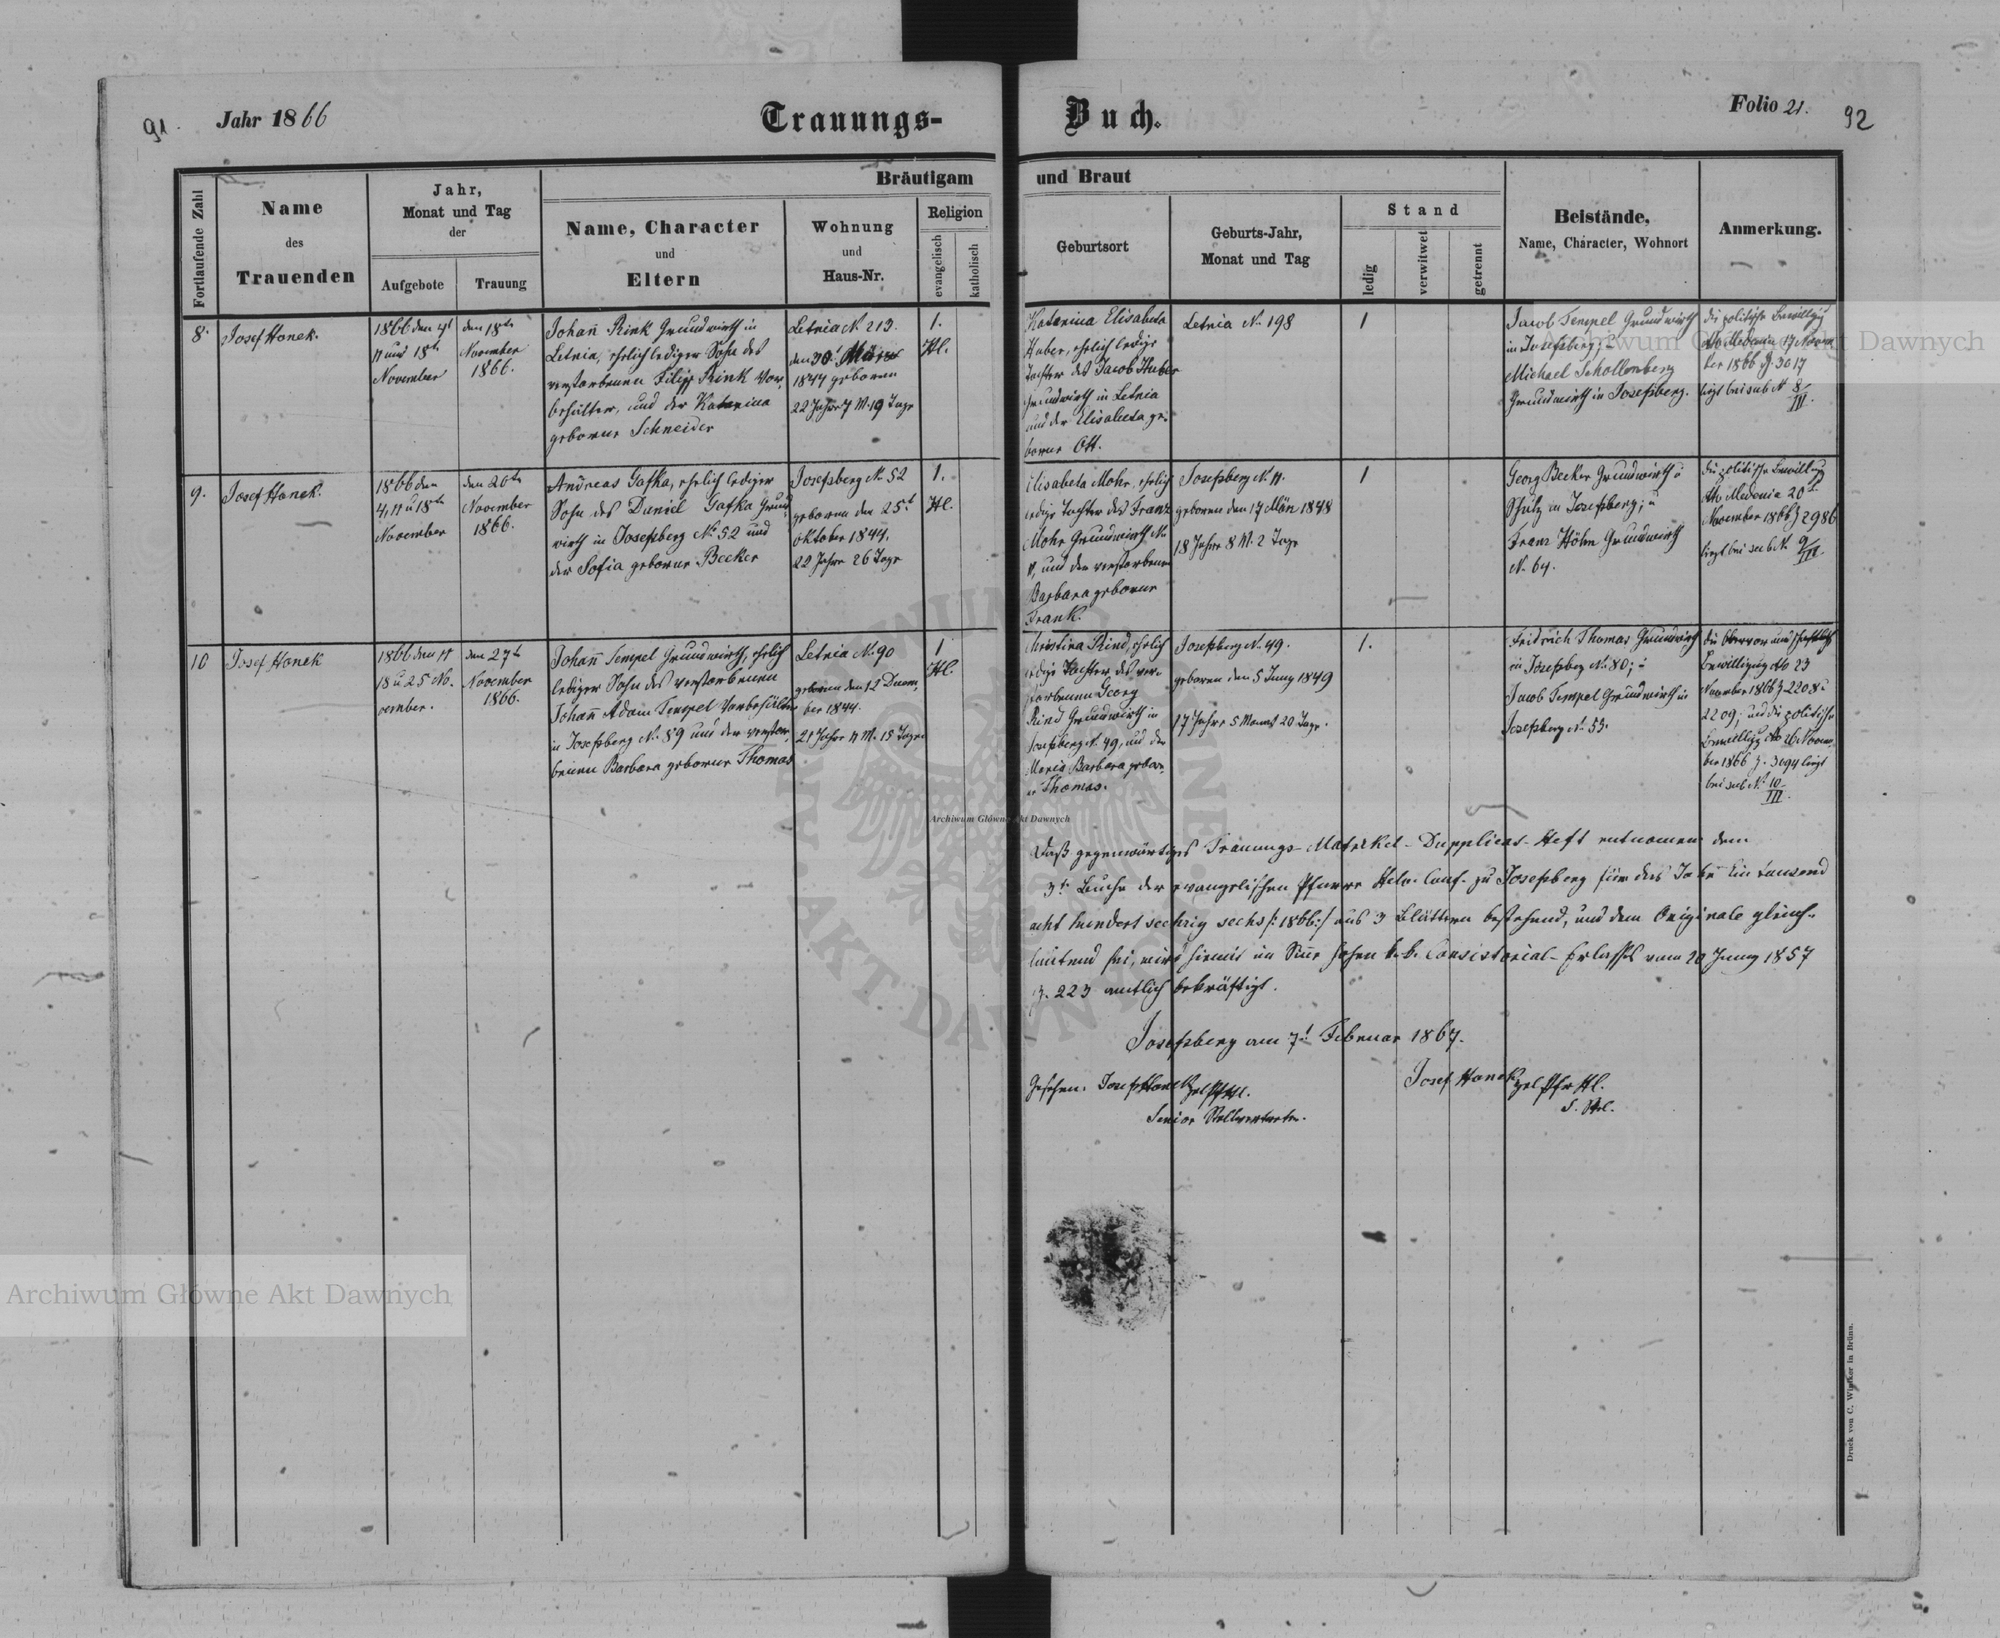 91.
Jahr 1866
Trauungs-
Buch.
Folio 21.
92
Fortlaufende Zahl
Name
des
Trauenden
Jahr,
Monat und Tag
der
Aufgebote
Trauung
Bräutigam
Name, Character
und
Eltern
Wohnung
und
Haus-Nr.
Religion
evangelisch
katholisch
und Braut
Geburtsort
Geburts-Jahr,
Monat und Tag
Stand
ledig
verwitwet
getrennt
Beistände,
Name, Character, Wohnort
Anmerkung.
8.
Josef Honek.
1866 den 4t
11 und 18tn
November
den 18tn
November
1866.
Johañ Rink Grundwirth in
Letnia, ehrlich lediger Sohn des
verstorbenen Filipp Rink Vor,
behälter, und der Katarina
geborne Schneider
Letnia N. 213.
den 30t März
1844 geboren
22 Jahre 7 M. 19 Tage
1.
Hl.
Katarina Elisabeta
Huber, ehrlich ledige
Tochter des Jacob Huber
Grundwirth in Letnia
und der Elisabeta ge,
borne Ott.
Letnia No 198
1
Jacob Tempel Grundwirth
in Josefsberg; u
Michael Schollenberg
Grundwirth in Josefsberg.
die politische Bewilligg
dto Medenia 17 Novem
ber 1866 Z. 3017
liegt bei sub N 8/III.
9.
Josef Honek.
1866 den
4, 11 u 18tn
November
den 20tn
November
1866.
Andreas Gafka, ehrlich lediger
Sohn des Daniel Gafka Grund
wirth in Josefsberg No 52 und
der Sofia geborne Becker
Josefsberg No 52
geboren den 25t
Oktober 1844.
22 Jahre 26 Tage
1.
Hl.
Elisabeta Mohr, ehrlich
ledige Tochter des Franz
Mohr Grundwirth No
11, und der verstorbenen
Barbara geborne
Frank.
Josefsberg N. 11.
geboren den 17 März 1848
18 Jahre 8 M. 2 Tage
1
Georg Becker Grundwirth u
Schulz in Josefsberg; u
Franz Höhn Grundwirth
No 64.
die politische Bewilligg
dto Medenia 20t
November 1866 Z 2986
liegt bei sub N. 9/III.
10
Josef Honek
1866 den 11
18 u 25 No,
vember.
den 27tn
November
1866.
Johañ Tempel Grundwirth, ehrlich
lediger Sohn des verstorbenen
Johañ Adam Tempel Vorbehälter
in Josefsberg No 89 und der verstor,
benen Barbara geborne Thomas
Letnia No 90
geboren den 12 Decem,
ber 1844.
21 Jahre 11 M. 15 Tage
1
Hl.
Christina Rind, ehrlich
ledige Tochter des ver,
storbenen Georg
Rind Grundwirth in
Josefsberg N. 49, und der
Maria Barbara gebor,
ne Thomas.
Josefsberg No 49.
geboren den 5 Juny 1849
17 Jahre 5 Monat 20 Tage.
1.
Fridrich Thomas Grundwirth
in Josefsberg No 80; u
Jacob Tempel Grundwirth in
Josefsberg No 53.
die Obervormundschaftliche
Bewilligung dto 23
November 1866 Z 2208 u
2209; und die politische
Bewilligg dto 26 Novem,
ber 1866 Z. 3094 liegt
bei sub No 10/III.
Daß gegenwärtiges Trauungs-Matrikel-Dupplicas-Heft entnomen dem
3t Buche der evangelischen Pfarre Helv. Conf. zu Josefsberg für das Jahr Ein tausend
acht hundert sechzig sechs /:1866:/ aus 3 Blättern bestehend, und dem Originale gleich,
lautend sei, wird hiemit im Siñe hohen k. k. Consistorial-Erlasses vom 20 Juny 1857
Z. 223 amtlich bekräftigt.
Josefsberg am 7t Februar 1867.
Gesehen. Josef Honek
Senior Stellvertreter.
Josef Honek
Druck von C. Winiker in Brünn.
Archiwum Główne Akt Dawnych
Archiwum Główne Akt Dawnych
Archiwum Główne Akt Dawnych